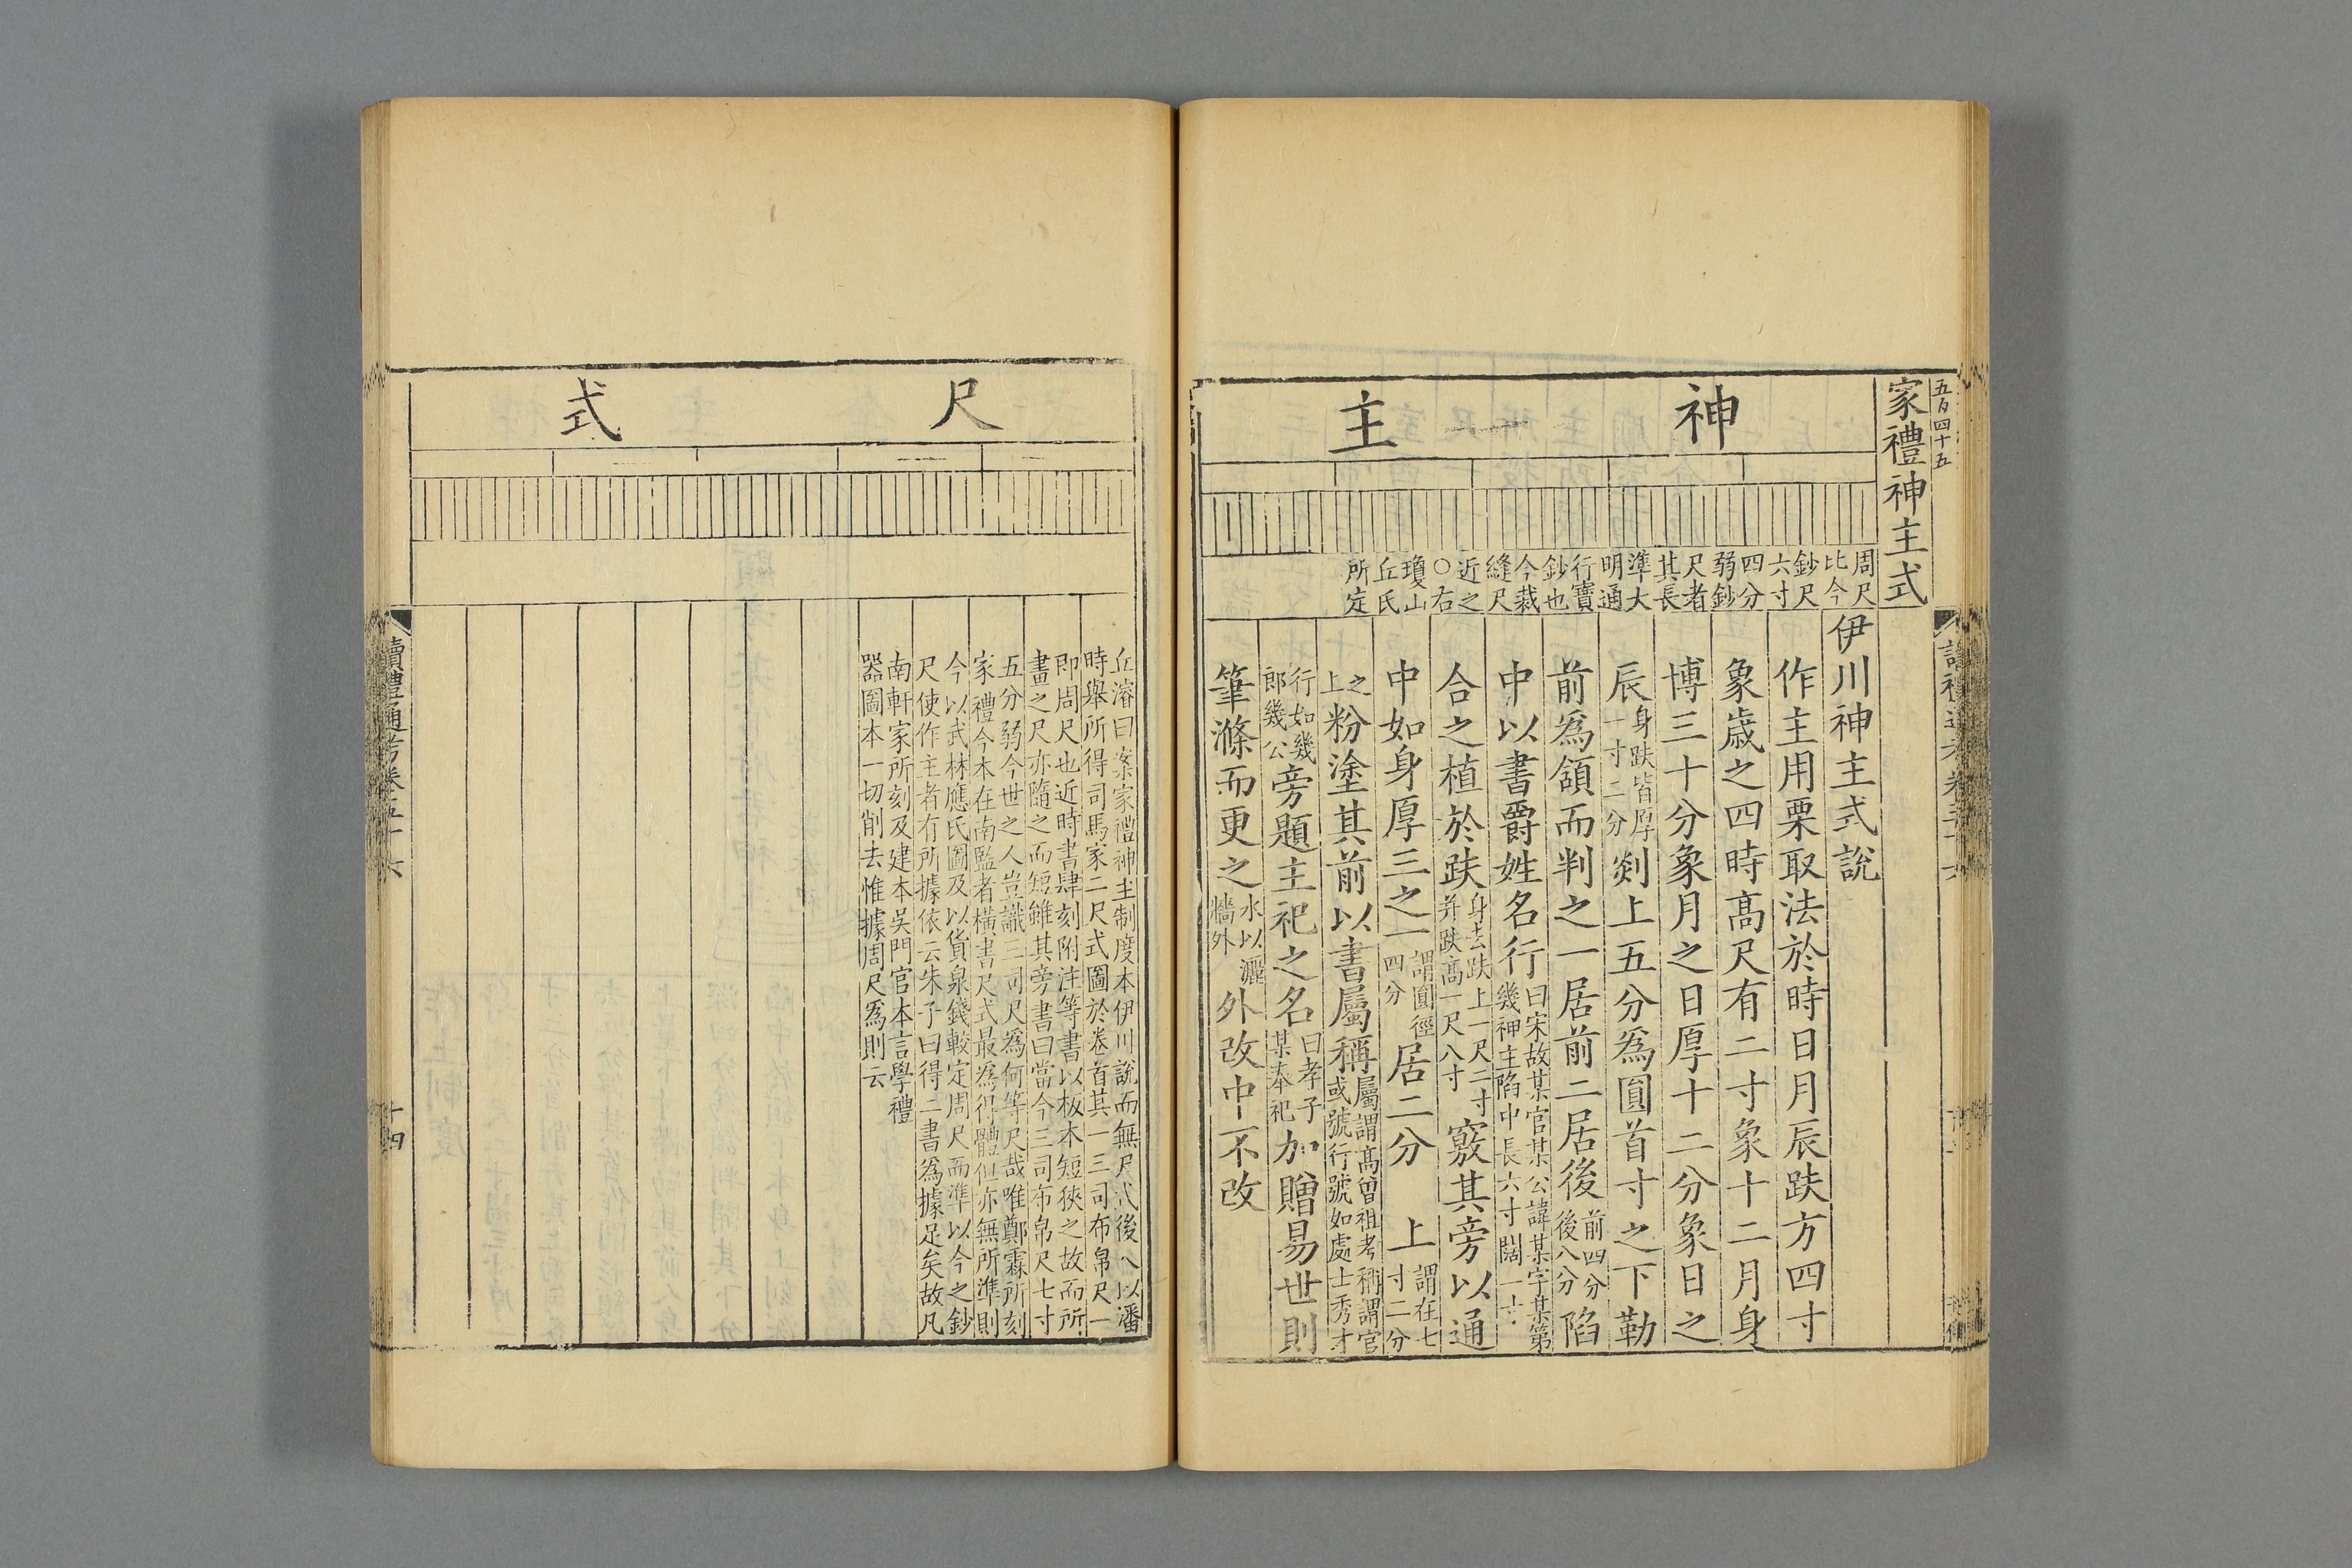 五百四十五
家禮神主式
神主
周尺
比今
鈔尺
六寸
四分
弱鈔
尺者
其長
準大
明通
行寶
鈔也
今裁
縫尺
近之
○右
瓊山
丘氏
所定
伊川神主式說
作主用栗取法於時日月辰趺方四寸
象歲之四時高尺有二寸象十二月身
博三十分象月之日厚十二分象日之
辰身趺皆厚一寸二分剡上五分爲圓首寸之下勒
前爲頷而判之一居前二居後前四分後八分陷
中以書爵姓名行曰宋故某官某公諱某字某第幾神主陷中長六寸闊一寸
合之植於趺身去趺上一尺二寸并趺高一尺八寸竅其旁以通
中如身厚三之一謂圓徑四分居二分上謂在七寸二分
之上粉塗其前以書屬稱屬謂高曾祖考稱謂官或號行號如處士秀才
行如幾郎幾公旁題主祀之名曰孝子某奉祀加贈易世則
筆滌而更之水以灑牆外外改中不改
尺式
丘濬曰案家禮神主制度本伊川說而無尺式後人以潘
時舉所得司馬家二尺式圖於卷首其一三司布帛尺一
即周尺也近時書肆刻附注等書以板本短狹之故而所
畫之尺亦隨之而短雖其旁書曰當今三司布帛尺七寸
五分弱今世之人豈識三司尺爲何等尺哉唯鄭霖所刻
家禮今本在南監者橫書尺式最爲得體但亦無所準則
今以武林應氏圖及以貨泉錢較定周尺而準以今之鈔
尺使作主者有所據依云朱子曰得二書爲據足矣故凡
南軒家所刻及建本吳門官本言學禮
器圖本一切削去惟據周尺爲則云
讀禮通考卷五十六
十四